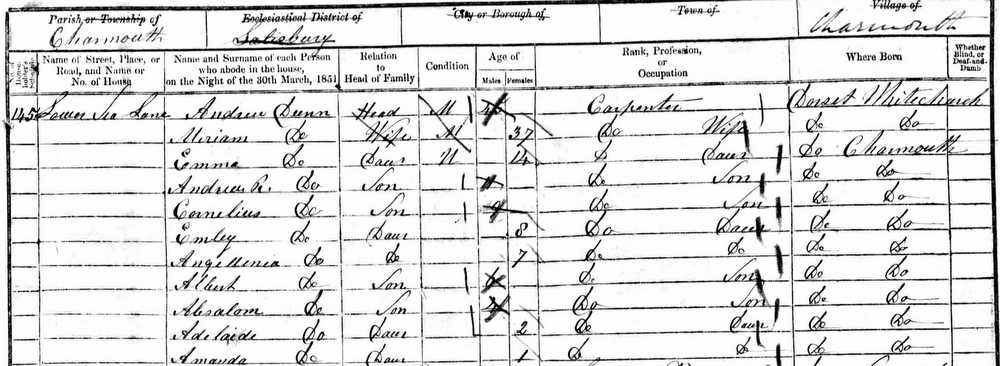 Parish or Township of Ecclesiastical District of City or Borough of Town of Village of
Charmouth Salisbury Charmouth
Name of Street, Place, or Road, and Name or No. of House Name and Surname of each Person who abode in the house, on the Night of the 30th March, 1851 Relation to Head of Family Condition Age of Males Females Rank, Profession, or Occupation Where Born Whether Blind, or Deaf-and-Dumb
145 Lower Sea Lane Andrew Dunn Head M Carpenter Dorset Whitechurch
Miriam Do Wife M 37 Do Wife Do Do
Emma Do Daur U 14 Do Daur Do Charmouth
Andrew R. Do Son 11 Do Son Do Do
Cornelius Do Son 9 Do Son Do Do
Emley Do Daur 8 Do Daur Do Do
Angellenia Do Do 7 Do Do Do Do
Albert Do Son 6 Do Son Do Do
Absalom Do Son 4 Do Son Do Do
Adelaide Do Daur 2 Do Daur Do Do
Amanda Do Daur 1 Do Do Do Do